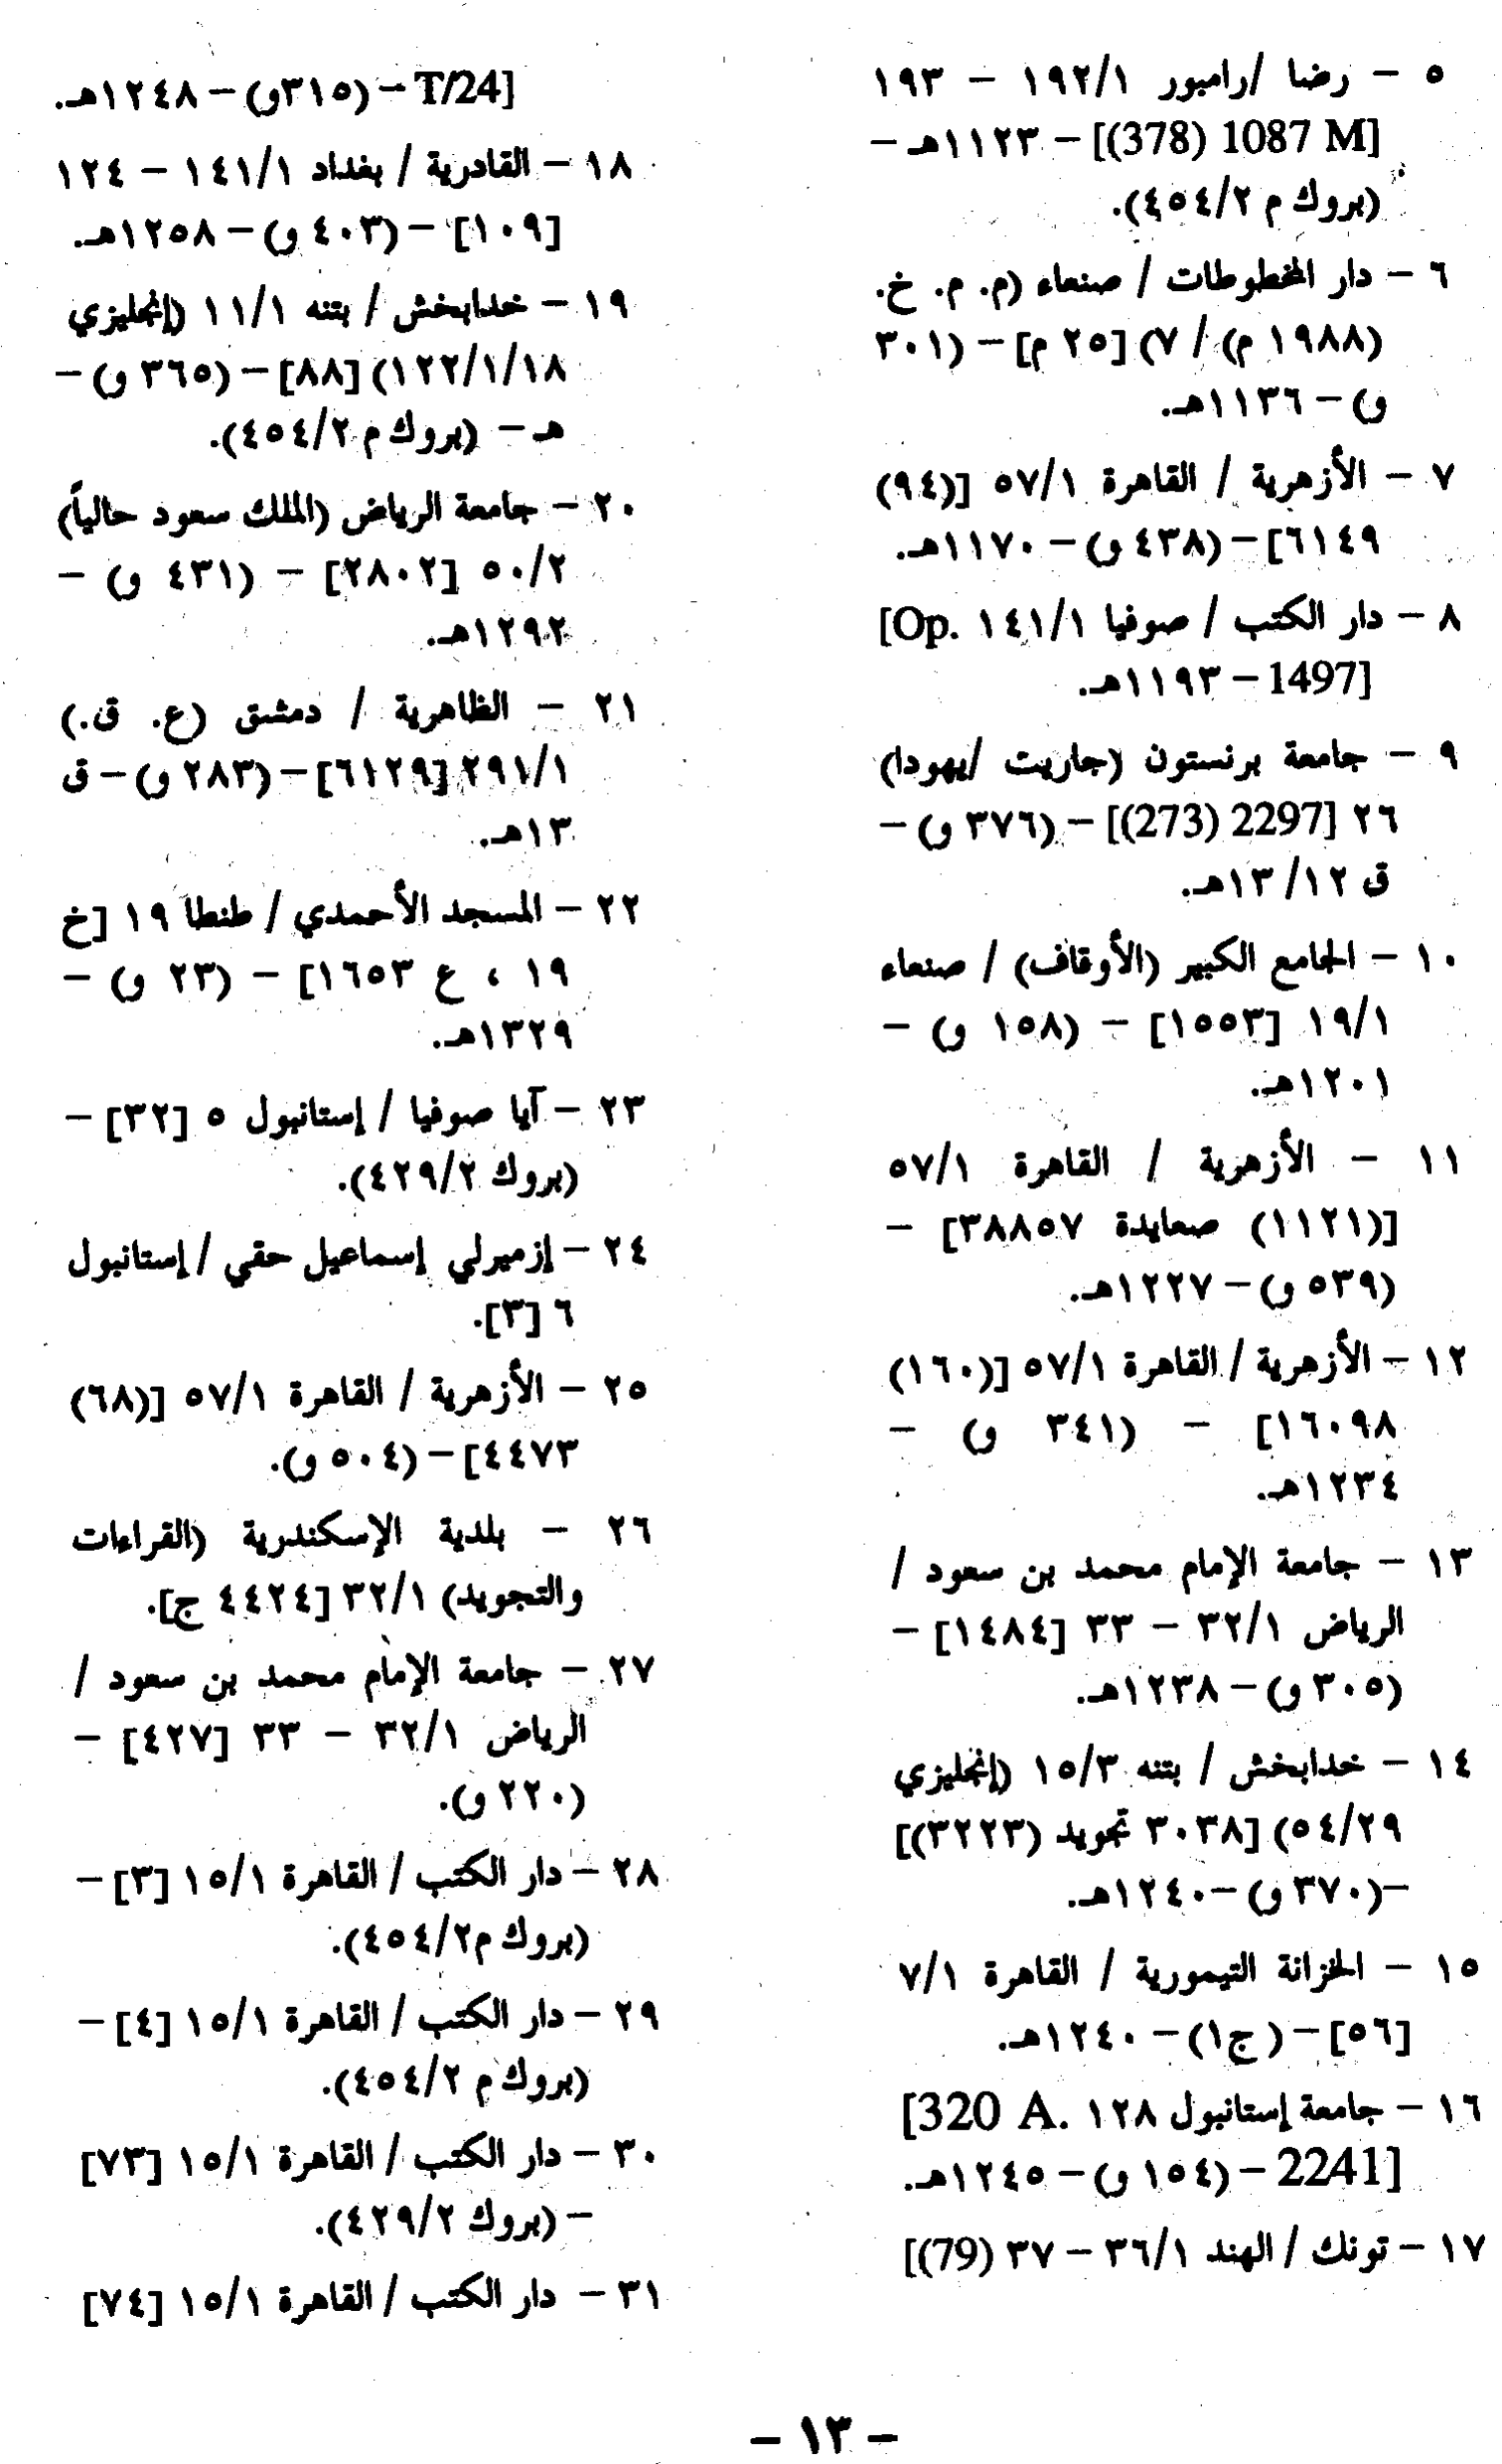 ٥ - رضا /رامبور ١٩٢/١ - ١٩٣
[(378) 1087 M] - ١١٢٣هـ -
(بروك م ٤٥٤/٢).
٦ - دار المخطوطات / صنعاء (م. م. خ.
(١٩٨٨ م) / ٧) [٢٥ م] - (٣٠١
و) - ١١٣٦هـ.
٧ - الأزهرية / القاهرة ٥٧/١ [(٩٤)
٦١٤٩] - (٤٣٨ و) - ١١٧٠هـ.
٨ - دار الكتب / صوفيا ١٤١/١ [Op.
1497] - ١١٩٣هـ.
٩ - جامعة برنستون (جاريت /يهودا)
٢٦ [2297 (273)] - (٣٧٦ و) -
ق ١٢/ ١٣هـ.
١٠ - الجامع الكبير (الأوقاف) / صنعاء
١٩/١ [١٥٥٣] - (١٥٨ و) -
١٢٠١هـ.
١١ - الأزهرية / القاهرة ٥٧/١
[(١١٢١) صعايدة ٣٨٨٥٧] -
(٥٣٩ و) - ١٢٢٧هـ.
١٢ - الأزهرية / القاهرة ٥٧/١ [(١٦٠)
١٦٠٩٨] - (٣٤١ و) -
١٢٣٤هـ.
١٣ - جامعة الإمام محمد بن سعود /
الرياض ٣٢/١ - ٣٣ [١٤٨٤] -
(٣٠٥ و) - ١٢٣٨هـ.
١٤ - خدابخش / بتنه ١٥/٣ (إنجليزي
٥٤/٢٩) [٣٠٣٨ تجويد (٣٢٢٣)]
-(٣٧٠ و) - ١٢٤٠هـ.
١٥ - الخزانة التيمورية / القاهرة ٧/١
[٥٦] - (ج١) - ١٢٤٠هـ.
١٦ - جامعة إستانبول ١٢٨ [320 A.
2241] - (١٥٤ و) - ١٢٤٥هـ.
١٧ - تونك / الهند ٣٦/١ - ٣٧ [(79)
T/24] - (٣١٥و) - ١٢٤٨هـ.
١٨ - القادرية / بغداد ١٤١/١ - ١٢٤
[١٠٩] - (٤٠٣ و) - ١٢٥٨هـ.
١٩ - خدابخش / بتنه ١١/١ (إنجليزي
١٢٢/١/١٨) [٨٨] - (٣٦٥ و) -
هـ - (بروك م ٤٥٤/٢).
٢٠ - جامعة الرياض (الملك سعود حالياً)
٥٠/٢ [٢٨٠٢] - (٤٣١ و) -
١٢٩٢هـ.
٢١ - الظاهرية / دمشق (ع. ق.)
٢٩١/١ [٦١٢٩] - (٢٨٣ و) - ق
١٣هـ.
٢٢ - المسجد الأحمدي / طنطا ١٩ [خ
١٩ ، ع ١٦٥٣] - (٢٣ و) -
١٣٢٩هـ.
٢٣ - آيا صوفيا / إستانبول ٥ [٣٢] -
(بروك ٤٢٩/٢).
٢٤ - إزميرلي إسماعيل حقي / إستانبول
٦ [٣].
٢٥ - الأزهرية / القاهرة ٥٧/١ [(٦٨)
٤٤٧٣] - (٥٠٤ و).
٢٦ - بلدية الإسكندرية (القراءات
والتجويد) ٣٢/١ [٤٤٢٤ ج].
٢٧ - جامعة الإمام محمد بن سعود /
الرياض ٣٢/١ - ٣٣ [٤٢٧] -
(٢٢٠ و).
٢٨ - دار الكتب / القاهرة ١٥/١ [٣] -
(بروك م٤٥٤/٢).
٢٩ - دار الكتب / القاهرة ١٥/١ [٤] -
(بروك م ٤٥٤/٢).
٣٠ - دار الكتب / القاهرة ١٥/١ [٧٣]
- (بروك ٤٢٩/٢).
٣١ - دار الكتب / القاهرة ١٥/١ [٧٤]
- ١٣ -